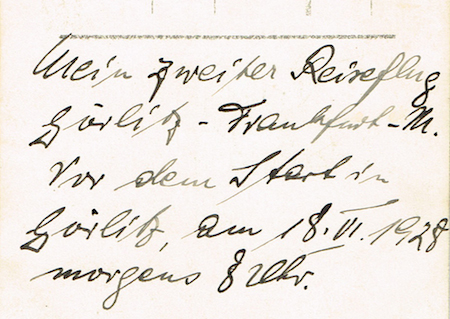 Mein zweiter Reiseflug
Görlitz - Frankfurt - M.
Vor dem Start in
Görlitz, am 18. VI. 1928
morgens 8 Uhr.